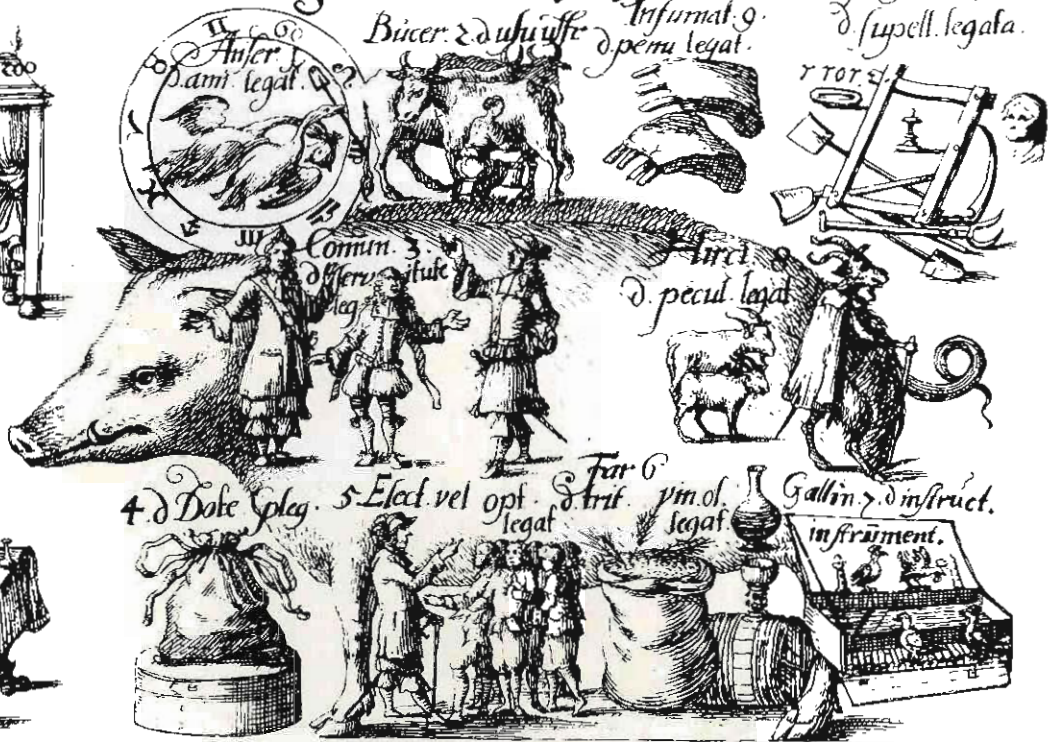 200
Anser. 1
d. ami. legat.
Bucer. 2. d usu usfr
Infumat. 9.
d. penu legat.
d. supell. legata.
Comun. 3.
d serv itute
leg
Hirci.
d. pecul. legat
4. d Dote
5. Elect. vel opt.
legat
Far 6
d. trit.
legat.
Gallin. 7. d instruct.
instrument.